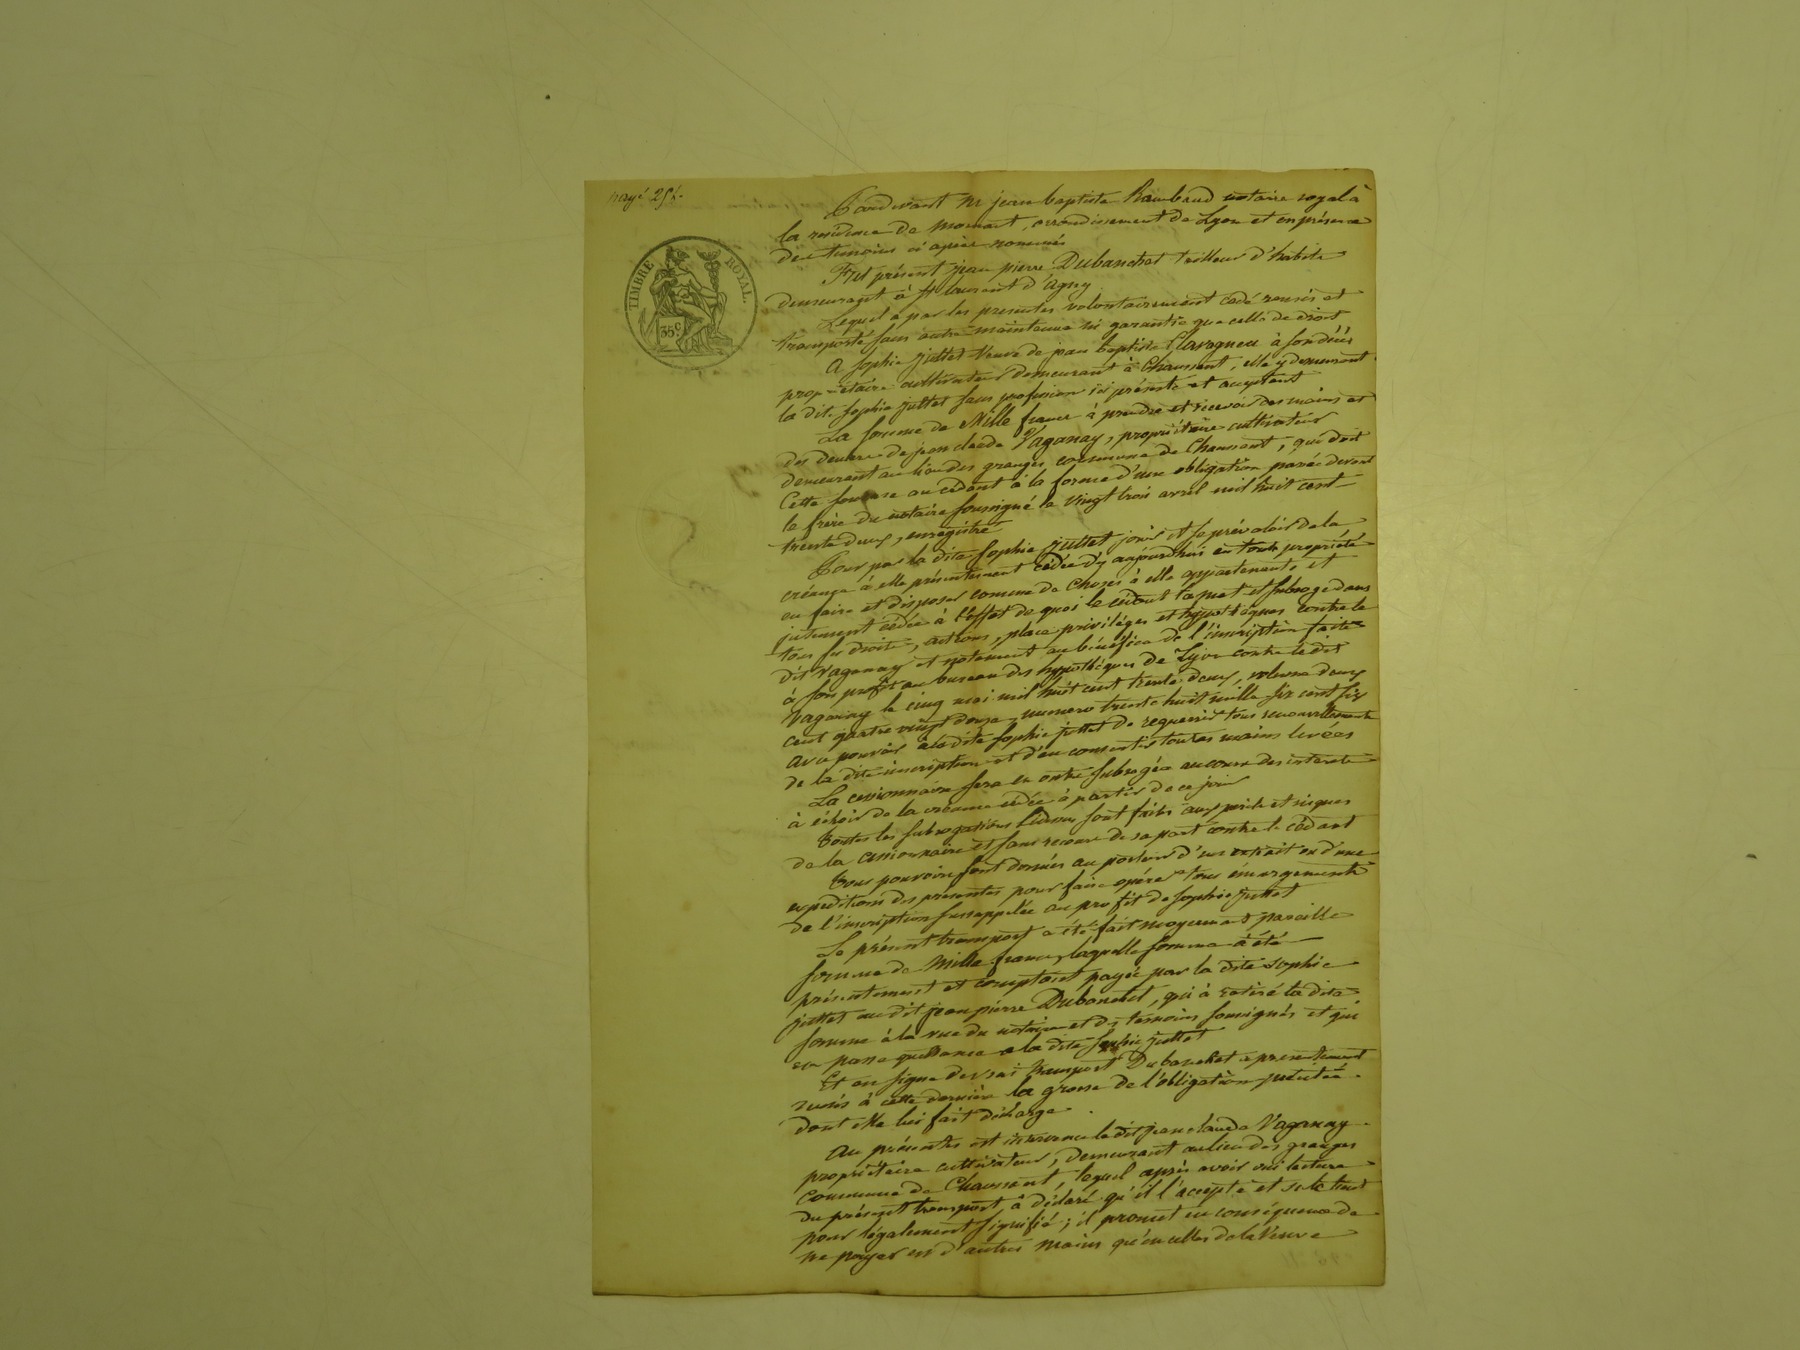 payé 25 c.
TIMBRE ROYAL.
35 c.
Pardevant Me jean baptiste Raimbaud notaire royal à
la residence de mornant, arrondissement de Lyon et en présence
des temoins ci après nommés
Fut présent jean pierre Dubanchet tailleur d'habits
demeurant à St laurent d'agny
Lequel a par les presentes volontairement cédé remis et
transporté sans autre maintenue ni garantie que celle de droit
A sophie juttet veuve de jean baptiste à son décès
propriétaire cultivateur demeurant à Chaussant, elle y demeurant
la dite sophie juttet sans profession ici présente et acceptant
La somme de Mille francs à prendre et recevoir des mains et
des deniers de jean claude Vaganay, propriétaire cultivateur
demeurant au lieu des granges commune de Chaussant, qui doit
cette somme au cédant à la forme d'une obligation passée devant
le frère du notaire soussigné le vingt trois avril mil huit cent
trente deux, enregistré
Pour par la dite sophie juttet jouir et se prévaloir de la
créance à elle présentement cédée dès aujourdhui en toute propriété
en faire et disposer comme de choses à elle appartenante et
justement cédée à l'effet de quoi le cédant la met et subroge dans
tous ses droits, actions, place privilèges et hypothèques contre le
dit Vaganay et notament au bénéfice de l'inscription faite
à son profit au bureau des hypothèques de Lyon contre le dit
Vaganay le cinq mai mil huit cent trente deux, volume deux
cent quatre vingt douze, numero trente huit mille six cent six
avec pouvoir à la dite sophie juttet de requerir tous renouvellements
de la dite inscription et d'en consentir toutes mains levées
La cessionnaire sera en outre subrogée au cours des interets
à échoir de la créance cédée à partir de ce jour
Toutes les subrogations sont faites aux perils et risques
de la cessionnaire et sans recours de sa part contre le cédant
Tous pouvoirs sont donnés au porteur d'un extrait ou d'une
expeditions des présentes pour faire opérer tous émargements
de l'inscription susrappelée au profit de sophie juttet
Le présent transport a été fait moyennant pareille
somme de Mille francs laquelle somme a été
présentement et comptant payée par la dite sophie
juttet au dit jean pierre Dubanchet, qui à retiré la dite
somme à la vue du notaire et des temoins soussignés et qui
en passe quittance a la dite sophie juttet
Et en signe de vrai transport Dubanchet a présentement
remis à cette dernière la grosse de l'obligation précitée
dont elle lui fait décharge
Au présentes est intervenu le dit jean claude Vaganay
propriétaire cultivateur, demeurant au lieu des granges
commune de Chaussant, lequel après avoir oui lecture
du présent transport, à déclaré qu'il l'accepte et se le tient
pour légalement signifié; il promet en consequence de
ne payer en d'autres mains qu'en celles de la veuve